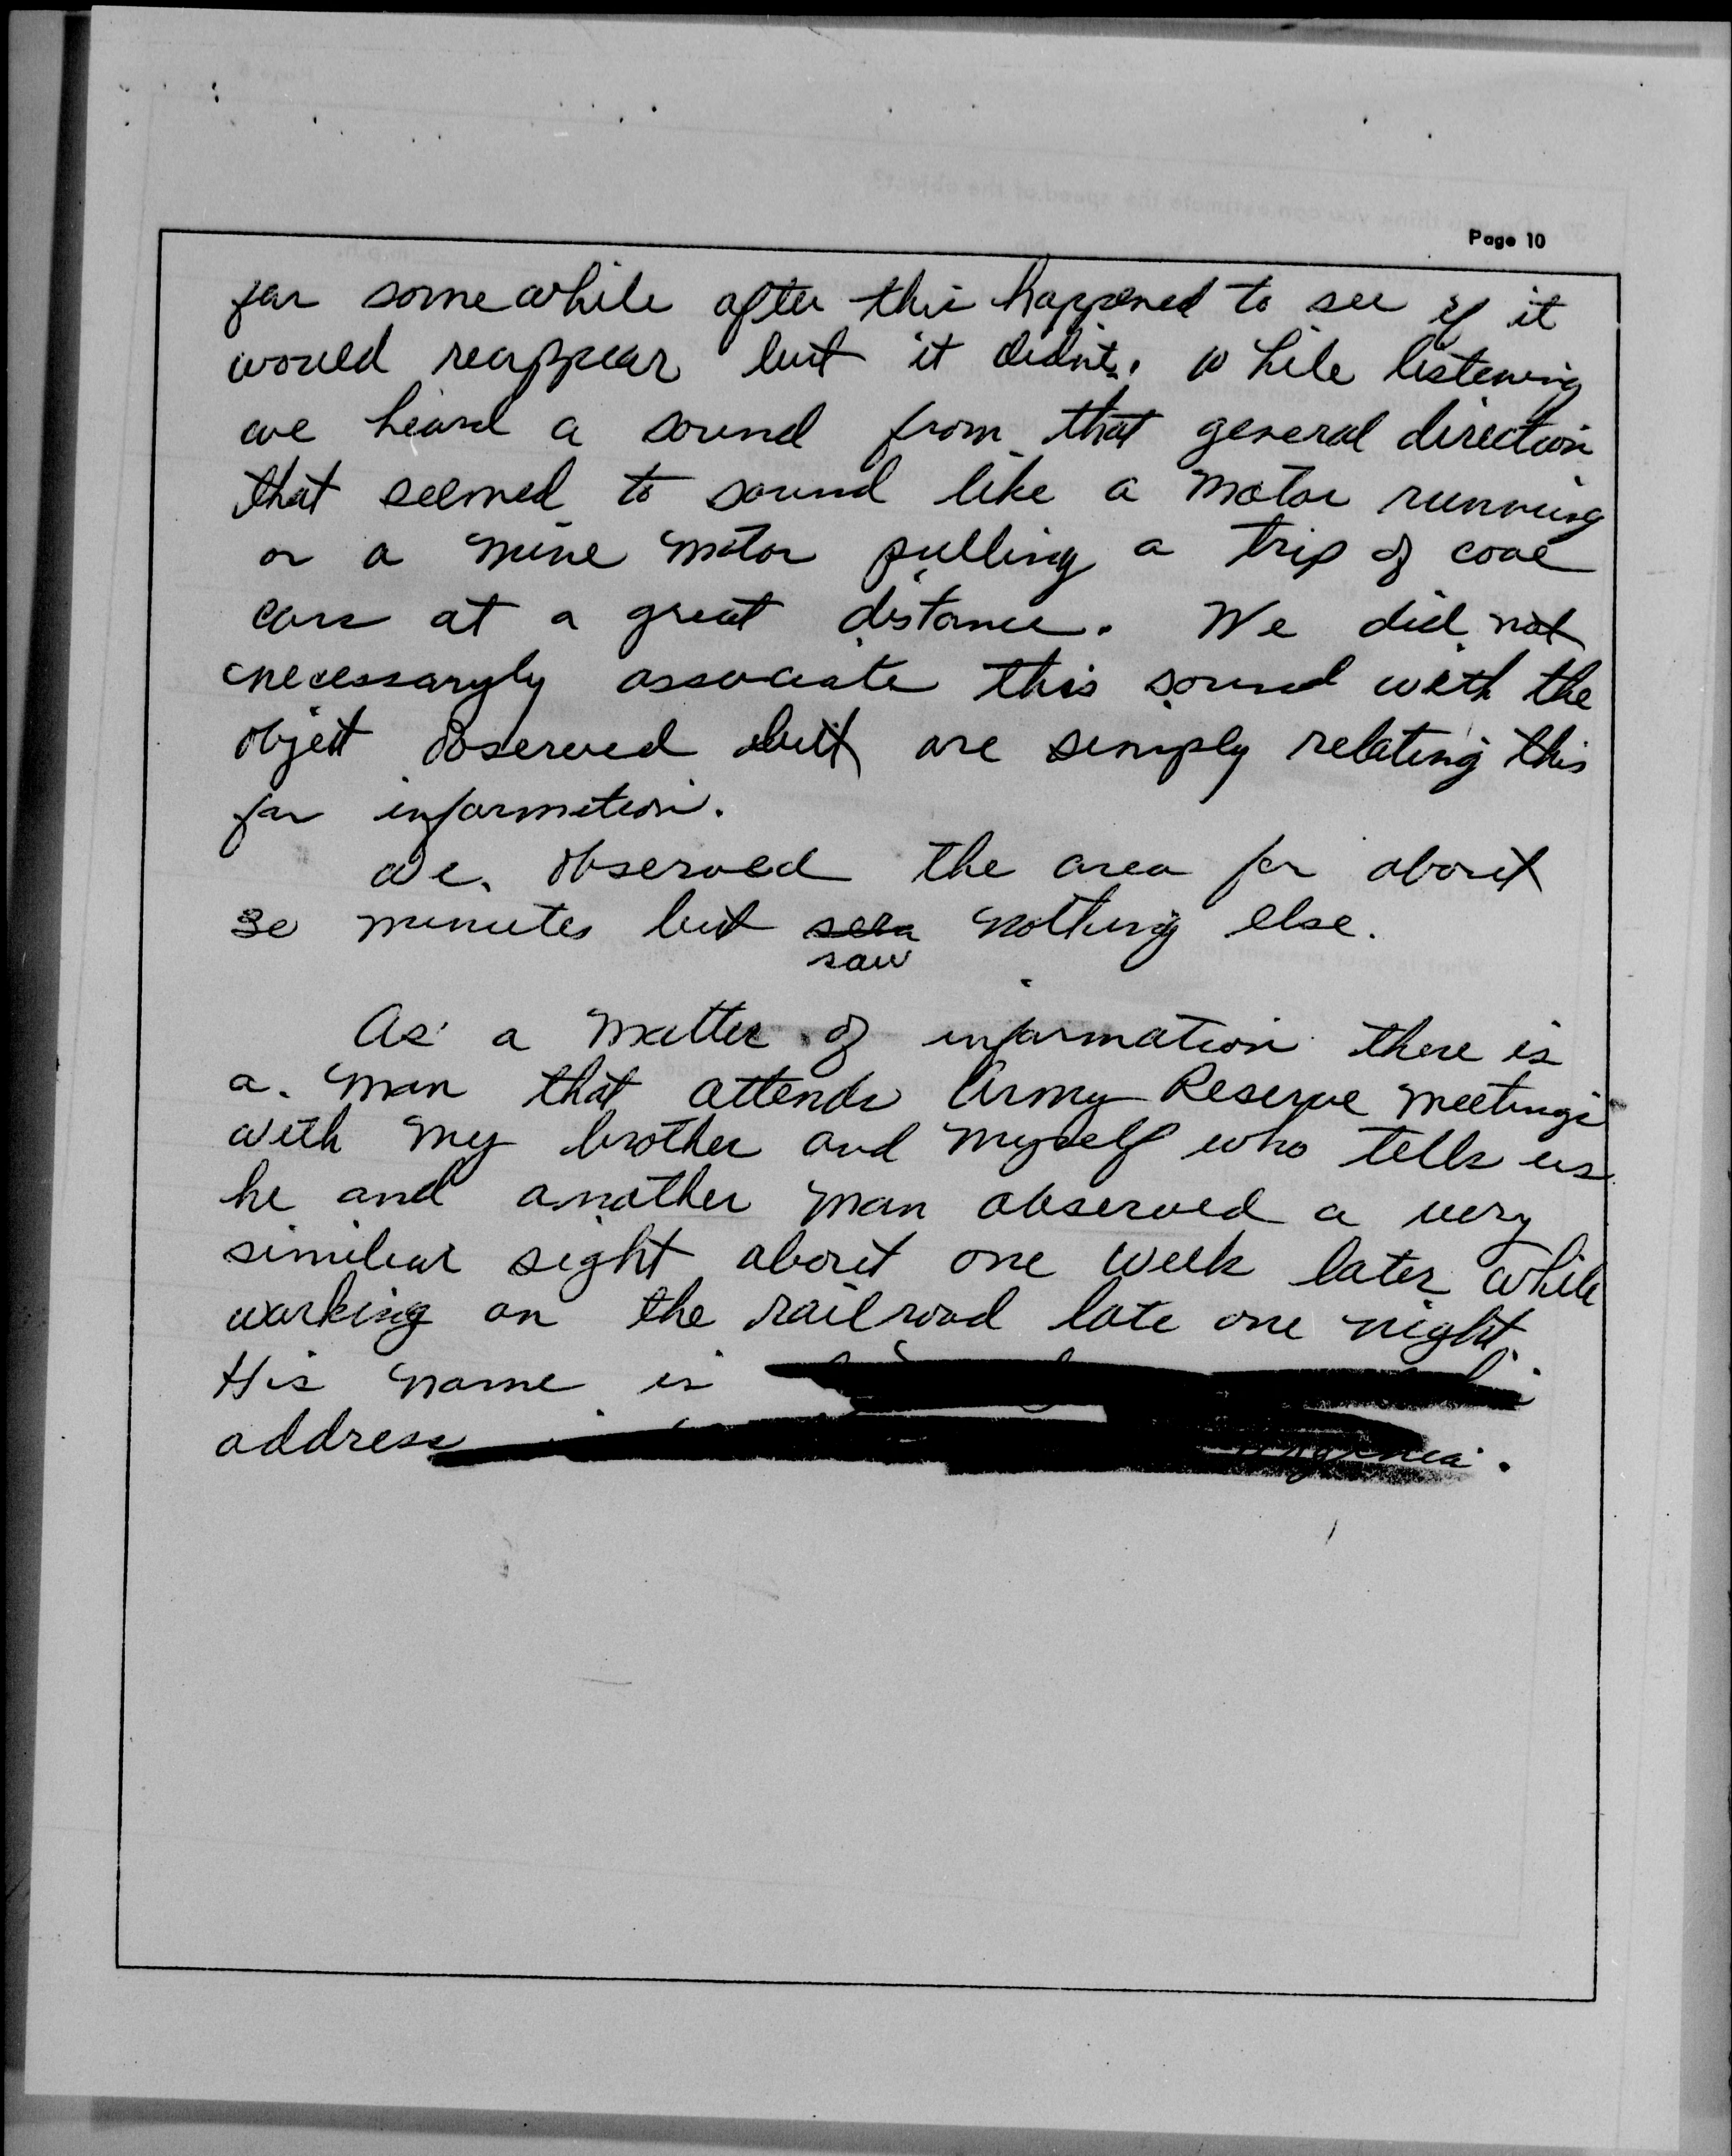 Page 10
for somewhile after this happened to see if it
would reappear but it didn't. While listening
we heard a sound from that general direction
that seemed to sound like a motor running
or a mine motor pulling a trip of coal
cars at a great distance. We did not
necessaryly associate this sound with the
objett observed but are simply relating this
for information.
We observed the area for about
30 minutes but seen nothing else.
saw
As a matter of information there is
a man that attends Army Reserve meetings
with my brother and myself who tells us
he and another man observed a very
similiar sight about one week later while
working on the railroad late one night.
His name is
address